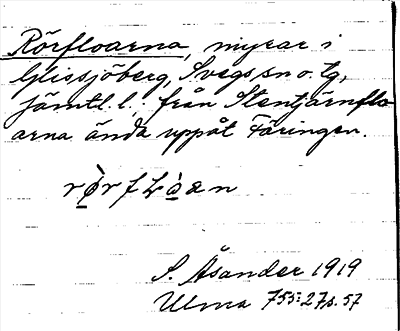 Rörfloarna, myrar i
Glissjöberg, Svegs sn o. tg,
Jämtl. l.: från Stentjärnflo-
arna ända uppåt Färingen.
S. Åsander 1919
Ulma 755:27 s. 57